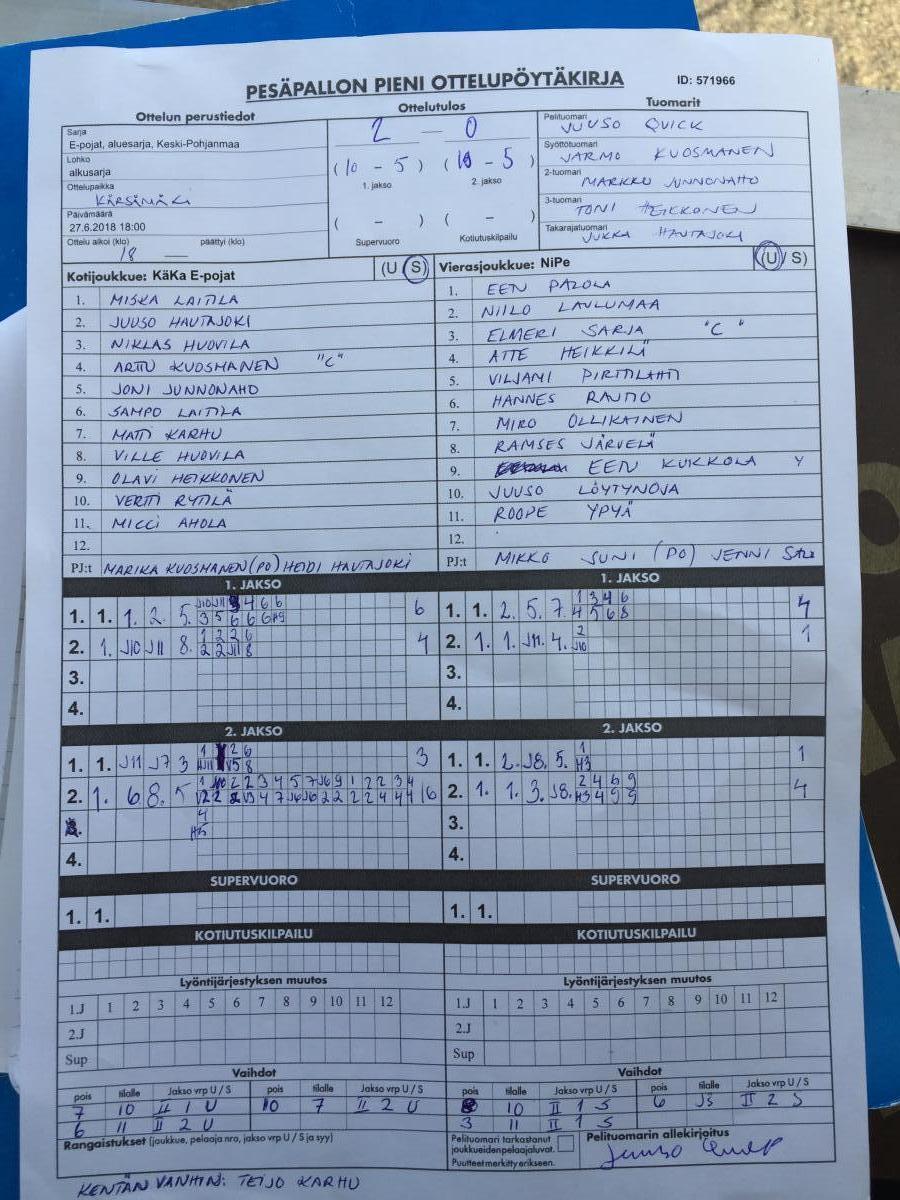 PESÄPALLON PIENI OTTELUPÖYTÄKIRJA
ID: 571966
Ottelun perustiedot
Sarja
E-pojat, aluesarja, Keski-Pohjanmaa
Lohko
alkusarja
Ottelupaikka
KÄRSÄMÄKI
Päivämäärä
27.6.2018 18:00
Ottelu alkoi (klo) päättyi (klo)
18 —
Ottelutulos
2 — 0
(10 - 5) ( - 5)
1. jakso 2. jakso
( - ) ( - )
Supervuoro Kotiutuskilpailu
Tuomarit
Pelituomari
JUUSO QUICK
Syöttötuomari
JARMO KUOSMANEN
2-tuomari
MARKKU JUNNONAHO
3-tuomari
TONI HEIKKONEN
Takarajatuomari
JUKKA HAUTAJOKI
Kotijoukkue: KäKa E-pojat (U S)
1. MISKA LAITILA
2. JUUSO HAUTAJOKI
3. NIKLAS HUOVILA
4. ARTTU KUOSMANEN "C"
5. JONI JUNNONAHO
6. SAMPO LAITILA
7. MATTI KARHU
8. VILLE HUOVILA
9. OLAVI HEIKKONEN
10. VERTTI RYTILÄ
11. MICCI AHOLA
12.
PJ:t MARIKA KUOSMANEN (PO) HEIDI HAUTAJOKI
Vierasjoukkue: NiPe (U / S)
1. EEN PAZOLA
2. NIILO LAULUMAA
3. ELMERI SARJA "C"
4. ATTE HEIKKILÄ
5. VILJAMI PIRTTILAHTI
6. HANNES RAUTIO
7. MIRO OLLIKAINEN
8. RAMSES JÄRVELÄ
9. EEN KUKKOLA Y
10. JUUSO LÖYTYNOJA
11. ROOPE YPYÄ
12.
PJ:t MIKKO SUNI (PO) JENNI
1. JAKSO
1. 1. 1. 2. 5. 6
2. 1. J10 J11 8. 4
3.
4.
1. JAKSO
1. 1. 2. 5. 7. 1 3 4 6 4
4 5 6 8
2. 1. 1. J11. 4. 2 1
J10
3.
4.
2. JAKSO
1. 1. J11 J7 3 3
2. 1. 6 8. 5 16
4.
2. JAKSO
1. 1. 2. J8. 5. 1 1
H3
2. 1. 1. 3. J8. 2 4 6 9 4
H3 4 9 9
3.
4.
SUPERVUORO
1. 1.
SUPERVUORO
1. 1.
KOTIUTUSKILPAILU
KOTIUTUSKILPAILU
Lyöntijärjestyksen muutos
1.J 1 2 3 4 5 6 7 8 9 10 11 12
2.J
Sup
Lyöntijärjestyksen muutos
1.J 1 2 3 4 5 6 7 8 9 10 11 12
2.J
Sup
Vaihdot
pois tilalle Jakso vrp U / S pois tilalle Jakso vrp U / S
7 10 II 1 U 10 7 II 2 U
6 11 II 2 U
Vaihdot
pois tilalle Jakso vrp U / S pois tilalle Jakso vrp U / S
10 II 1 S 6 II 2 S
3 11 II 1 S
Rangaistukset (joukkue, pelaaja nro, jakso vrp U / S ja syy)
Pelituomari tarkastanut
joukkueiden pelaajaluvat.
Puutteet merkitty erikseen.
Pelituomarin allekirjoitus
KENTÄN VANHIN: TEIJO KARHU